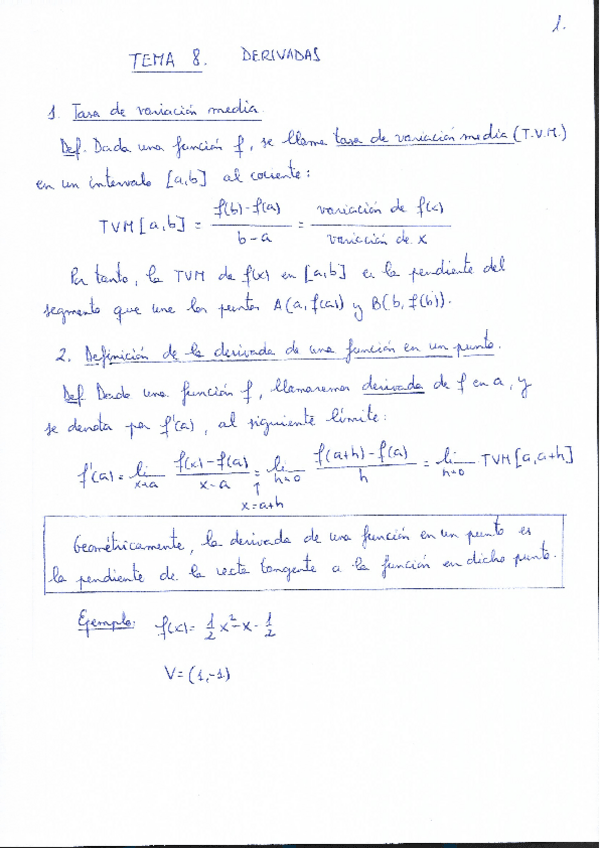 1.
TEMA 8. DERIVADAS
1. Tasa de variación media.
Def. Dada una función f, se llama tasa de variación media (T.V.M.)
en un intervalo [a,b] al cociente:
TVM[a,b] = f(b)-f(a) / b-a = variación de f(x) / variación de x
Por tanto, la TVM de f(x) en [a,b] es la pendiente del
segmento que une los puntos A(a, f(a)) y B(b, f(b)).
2. Definición de la derivada de una función en un punto.
Def Dada una función f, llamaremos derivada de f en a, y
se denota por f'(a), al siguiente límite:
f'(a) = lim x→a f(x)-f(a) / x-a = lim h→0 f(a+h)-f(a) / h = lim h→0 TVM[a,a+h]
↑
x=a+h
Geométricamente, la derivada de una función en un punto es
la pendiente de la recta tangente a la función en dicho punto.
Ejemplo: f(x)= 1/2 x²-x-1/2
V=(1,-1)